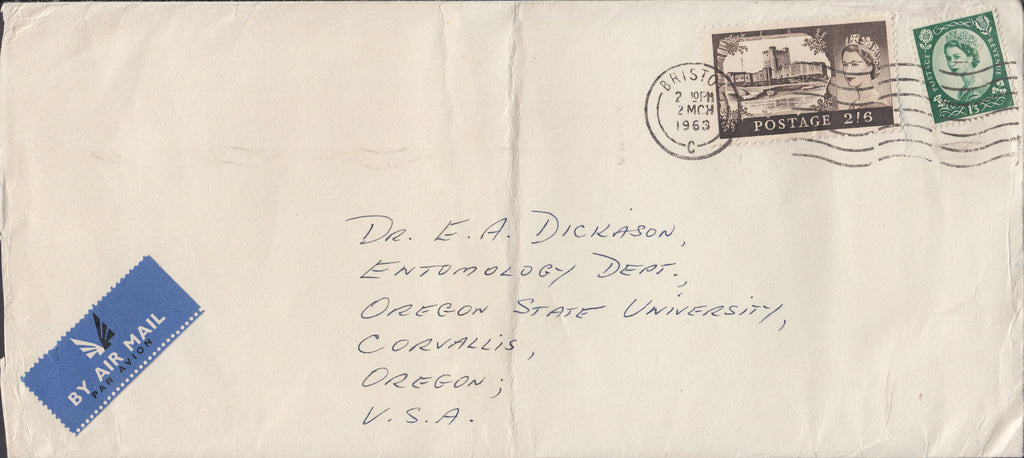 BRISTOL
2 10PM
2 MCH
1963
C
POSTAGE 2/6
POSTAGE REVENUE
1/3
DR. E. A. DICKASON,
ENTOMOLOGY DEPT.,
OREGON STATE UNIVERSITY,
CORVALLIS,
OREGON;
U.S.A.
BY AIR MAIL
PAR AVION